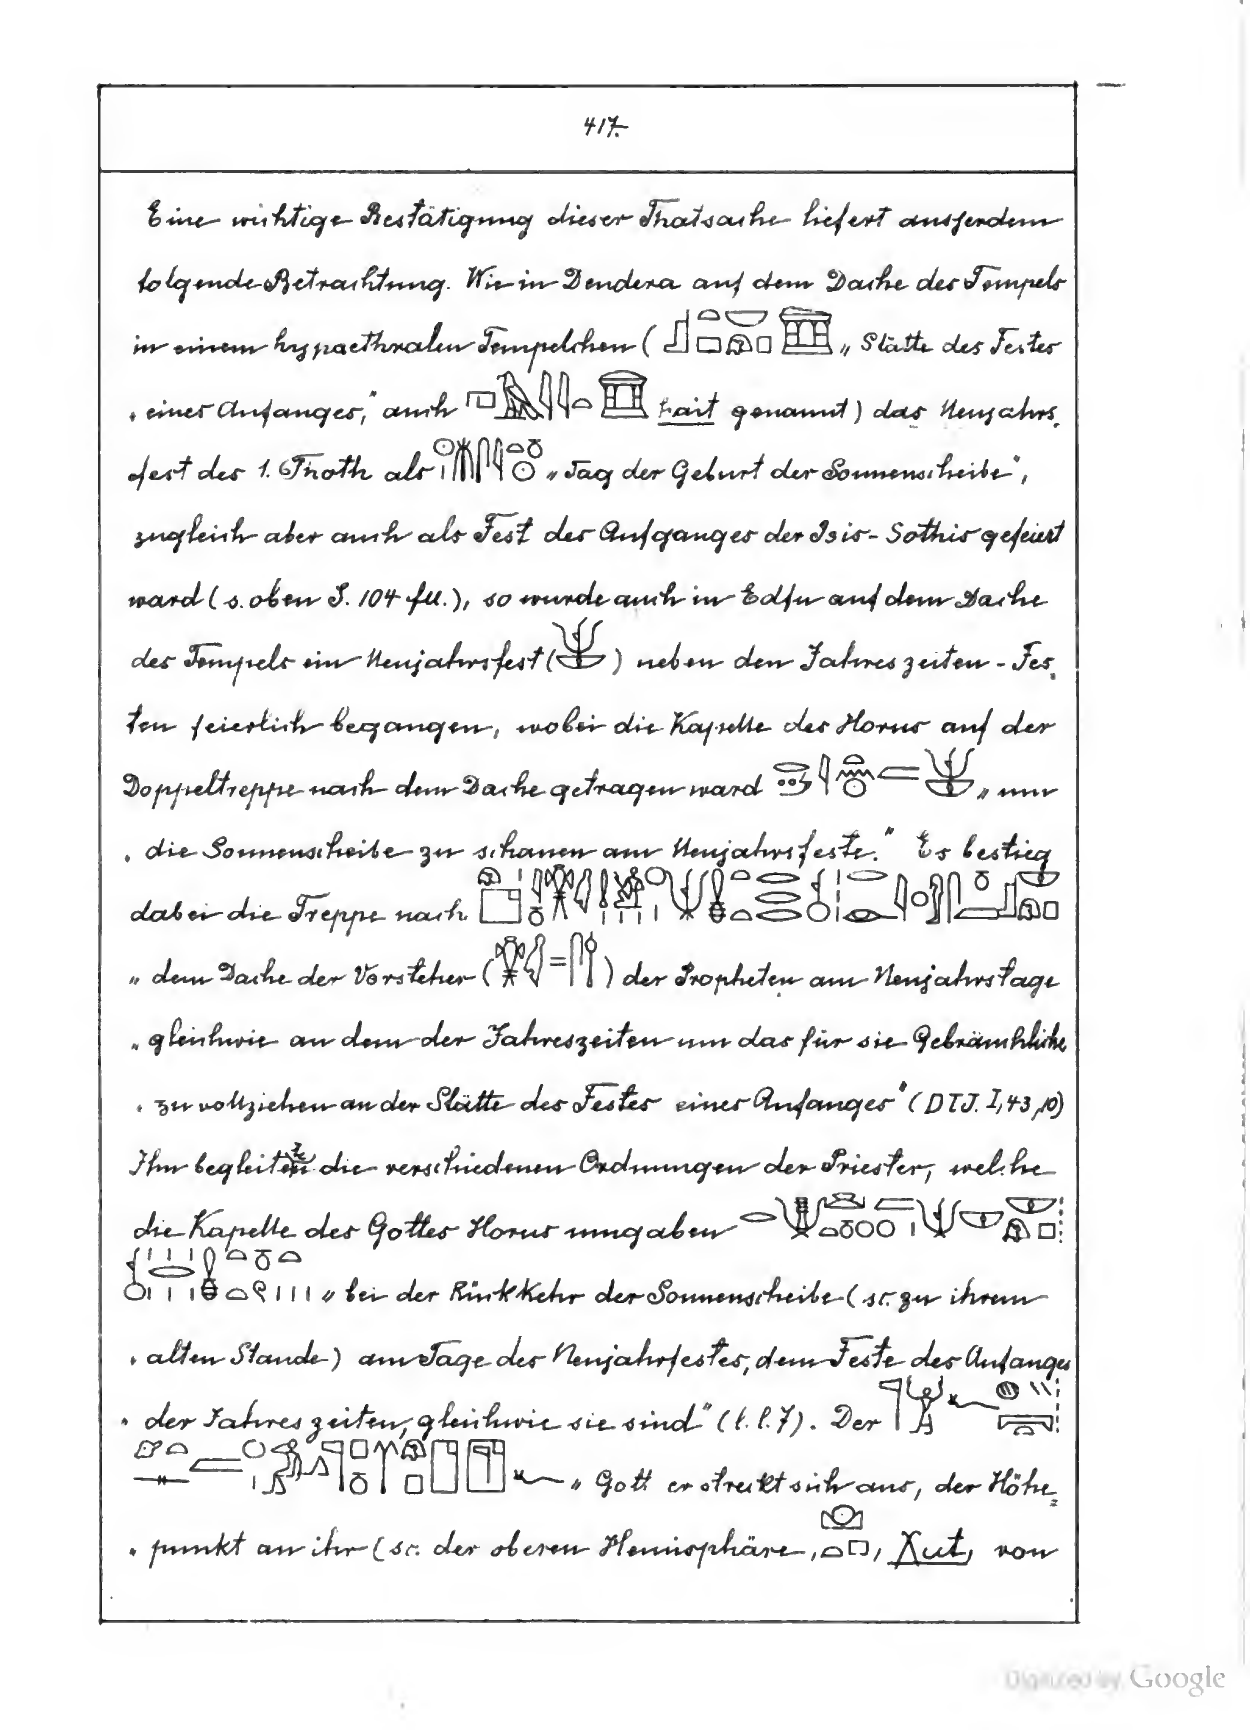 417.
Eine wichtige Bestätigung dieser Thatsache liefert ausserdem
folgende Betrachtung. Wie in Dendera auf dem Dache des Tempels
in einem hypaethralen Tempelchen ( „ Stätte des Festes
„ eines Anfanges," auch hait genannt) das Neujahrs,
fest des 1. Thoth als „ Tag der Geburt der Sonnenscheibe",
zugleich aber auch als Fest des Aufganges der Isis-Sothis gefeiert
ward (s. oben S. 104 fll.), so wurde auch in Edfu auf dem Dache
des Tempels ein Neujahrsfest ( ) neben den Jahreszeiten-Fes,
ten feierlich begangen, wobei die Kapelle des Horus auf der
Doppeltreppe nach dem Dache getragen ward „ um
„ die Sonnenscheibe zu schauen am Neujahrsfeste." Es bestieg
dabei die Treppe nach
„ dem Dache der Vorsteher ( = ) der Propheten am Neujahrstage
„ gleichwie an dem der Jahreszeiten um das für sie Gebräuchliche
„ zu vollziehen an der Stätte des Festes eines Anfanges" (DTJ. I, 43, 10)
Ihn begleiten die verschiedenen Ordnungen der Priester, welche
die Kapelle des Gottes Horus umgaben
„ bei der Rückkehr der Sonnenscheibe (sc. zu ihrem
„ alten Stande) am Tage des Neujahrfestes, dem Feste des Anfanges
„ der Jahreszeiten, gleichwie sie sind" (l. l. 7). Der
„ Gott er streckt sich aus, der Höhe,
„ punkt an ihr (sc. der oberen Hemisphäre, , χut, von
Digitized by Google